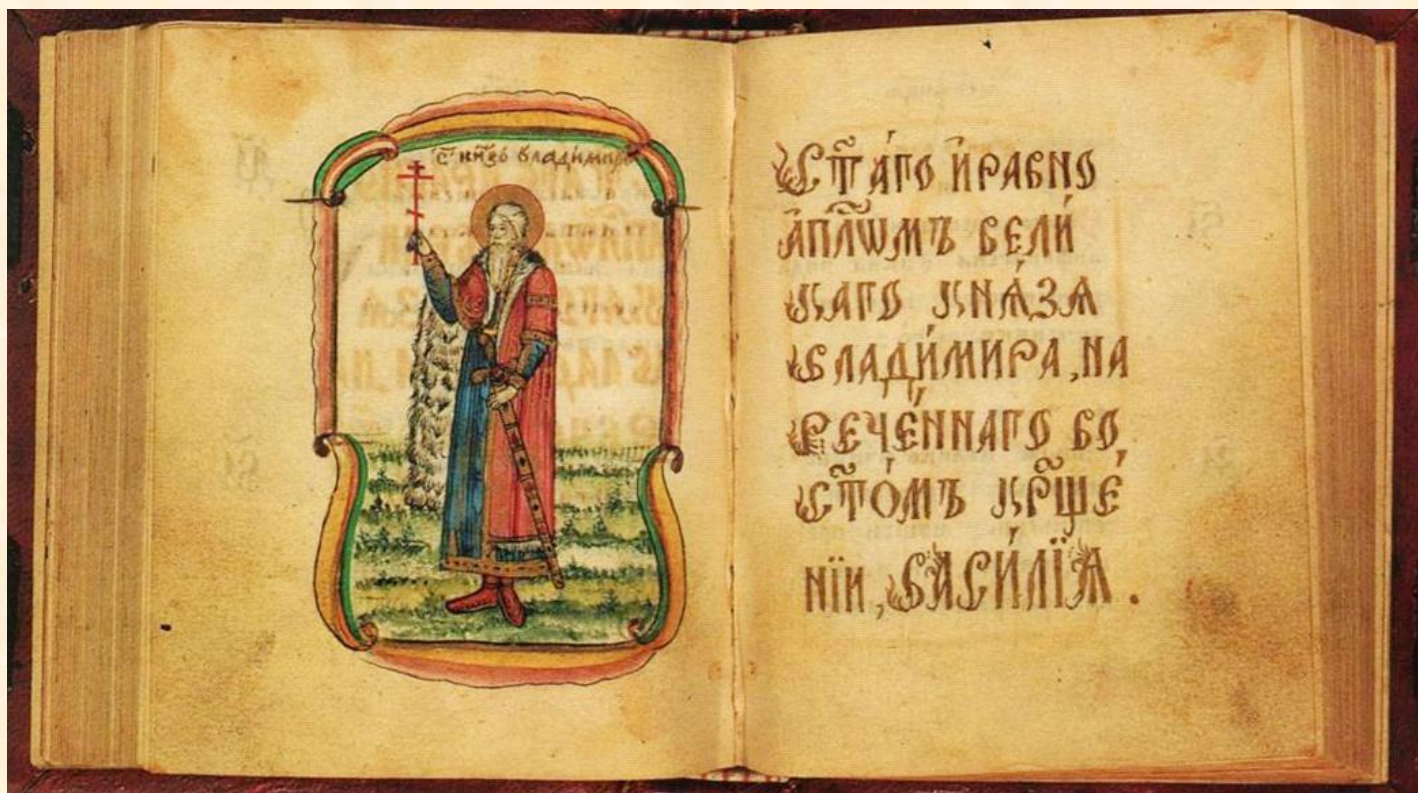 С҃ кн҃зь владимиръ
Ст҃а́го и҆ равно
а҆пⷭ҇лѡмъ вели́
каго кнѧ́зѧ
влади́мира, на
рече́ннаго во
ст҃о́мъ кр҃ще́
нїи, васи́лїѧ.